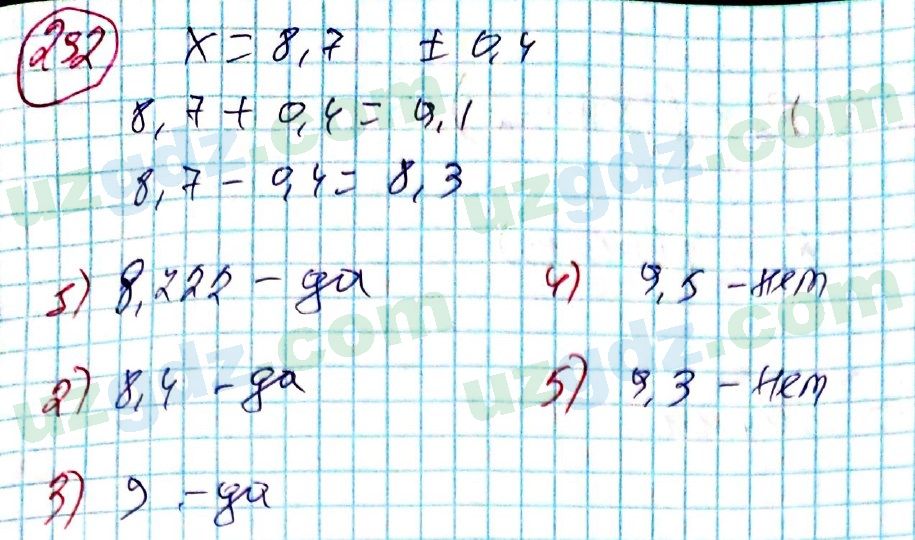 292 x = 8,7 ± 0,4
8,7 + 0,4 = 9,1
8,7 - 0,4 = 8,3
1) 8,222 - да 4) 9,5 - нет
2) 8,4 - да 5) 9,3 - нет
3) 9 - да
uzgdz.com uzgdz.com
uzgdz.com uzgdz.com